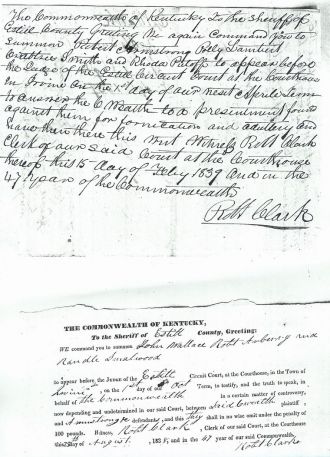 The Commonwealth of Kentucky to the Sheriff of
Estill County Greting We again Command you to
Summon Robert Armstrong Polly Lambert
Smith and Rhoda to appear before
the Judge of the Estill Circuit Court at the Courthouse
in Irvine on the 1st day of our next Aprile Term
to answer the C Wealth to a presentment found
against them for fornication and adultery and
have then there this Writ Witness Robt Clark
Clerk of our said Court at the Courthouse
hereof this 15 day of Feby 1839 and in the
47 year of the Commonwealth
Robt Clark
THE COMMONWEALTH OF KENTUCKY,
To the Sheriff of Estill County, Greeting:
WE command you to summon John Wallace Robt and
Randle Smalwood
to appear before the JUDGE of the Estill Circuit Court, at the Courthouse, in the Town of
Irvine on the 1st day of Oct Term, to testify, and the truth to speak, in
behalf of the Commonwealth in a certain matter of controversy,
now depending and undetermined in our said Court, between said Cwealth plaintiff,
and Armstrong &c defendants, and this they shall in no wise omit under the penalty of
100 pounds. Witness, Robt Clark, Clerk of our said Court, at the Courthouse
this day of August, 183 and in the 47 year of our said Commonwealth.
Robt Clarke